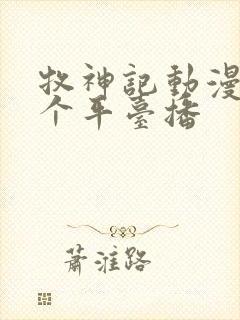 牧神記動漫
个平臺播
蕭淮路